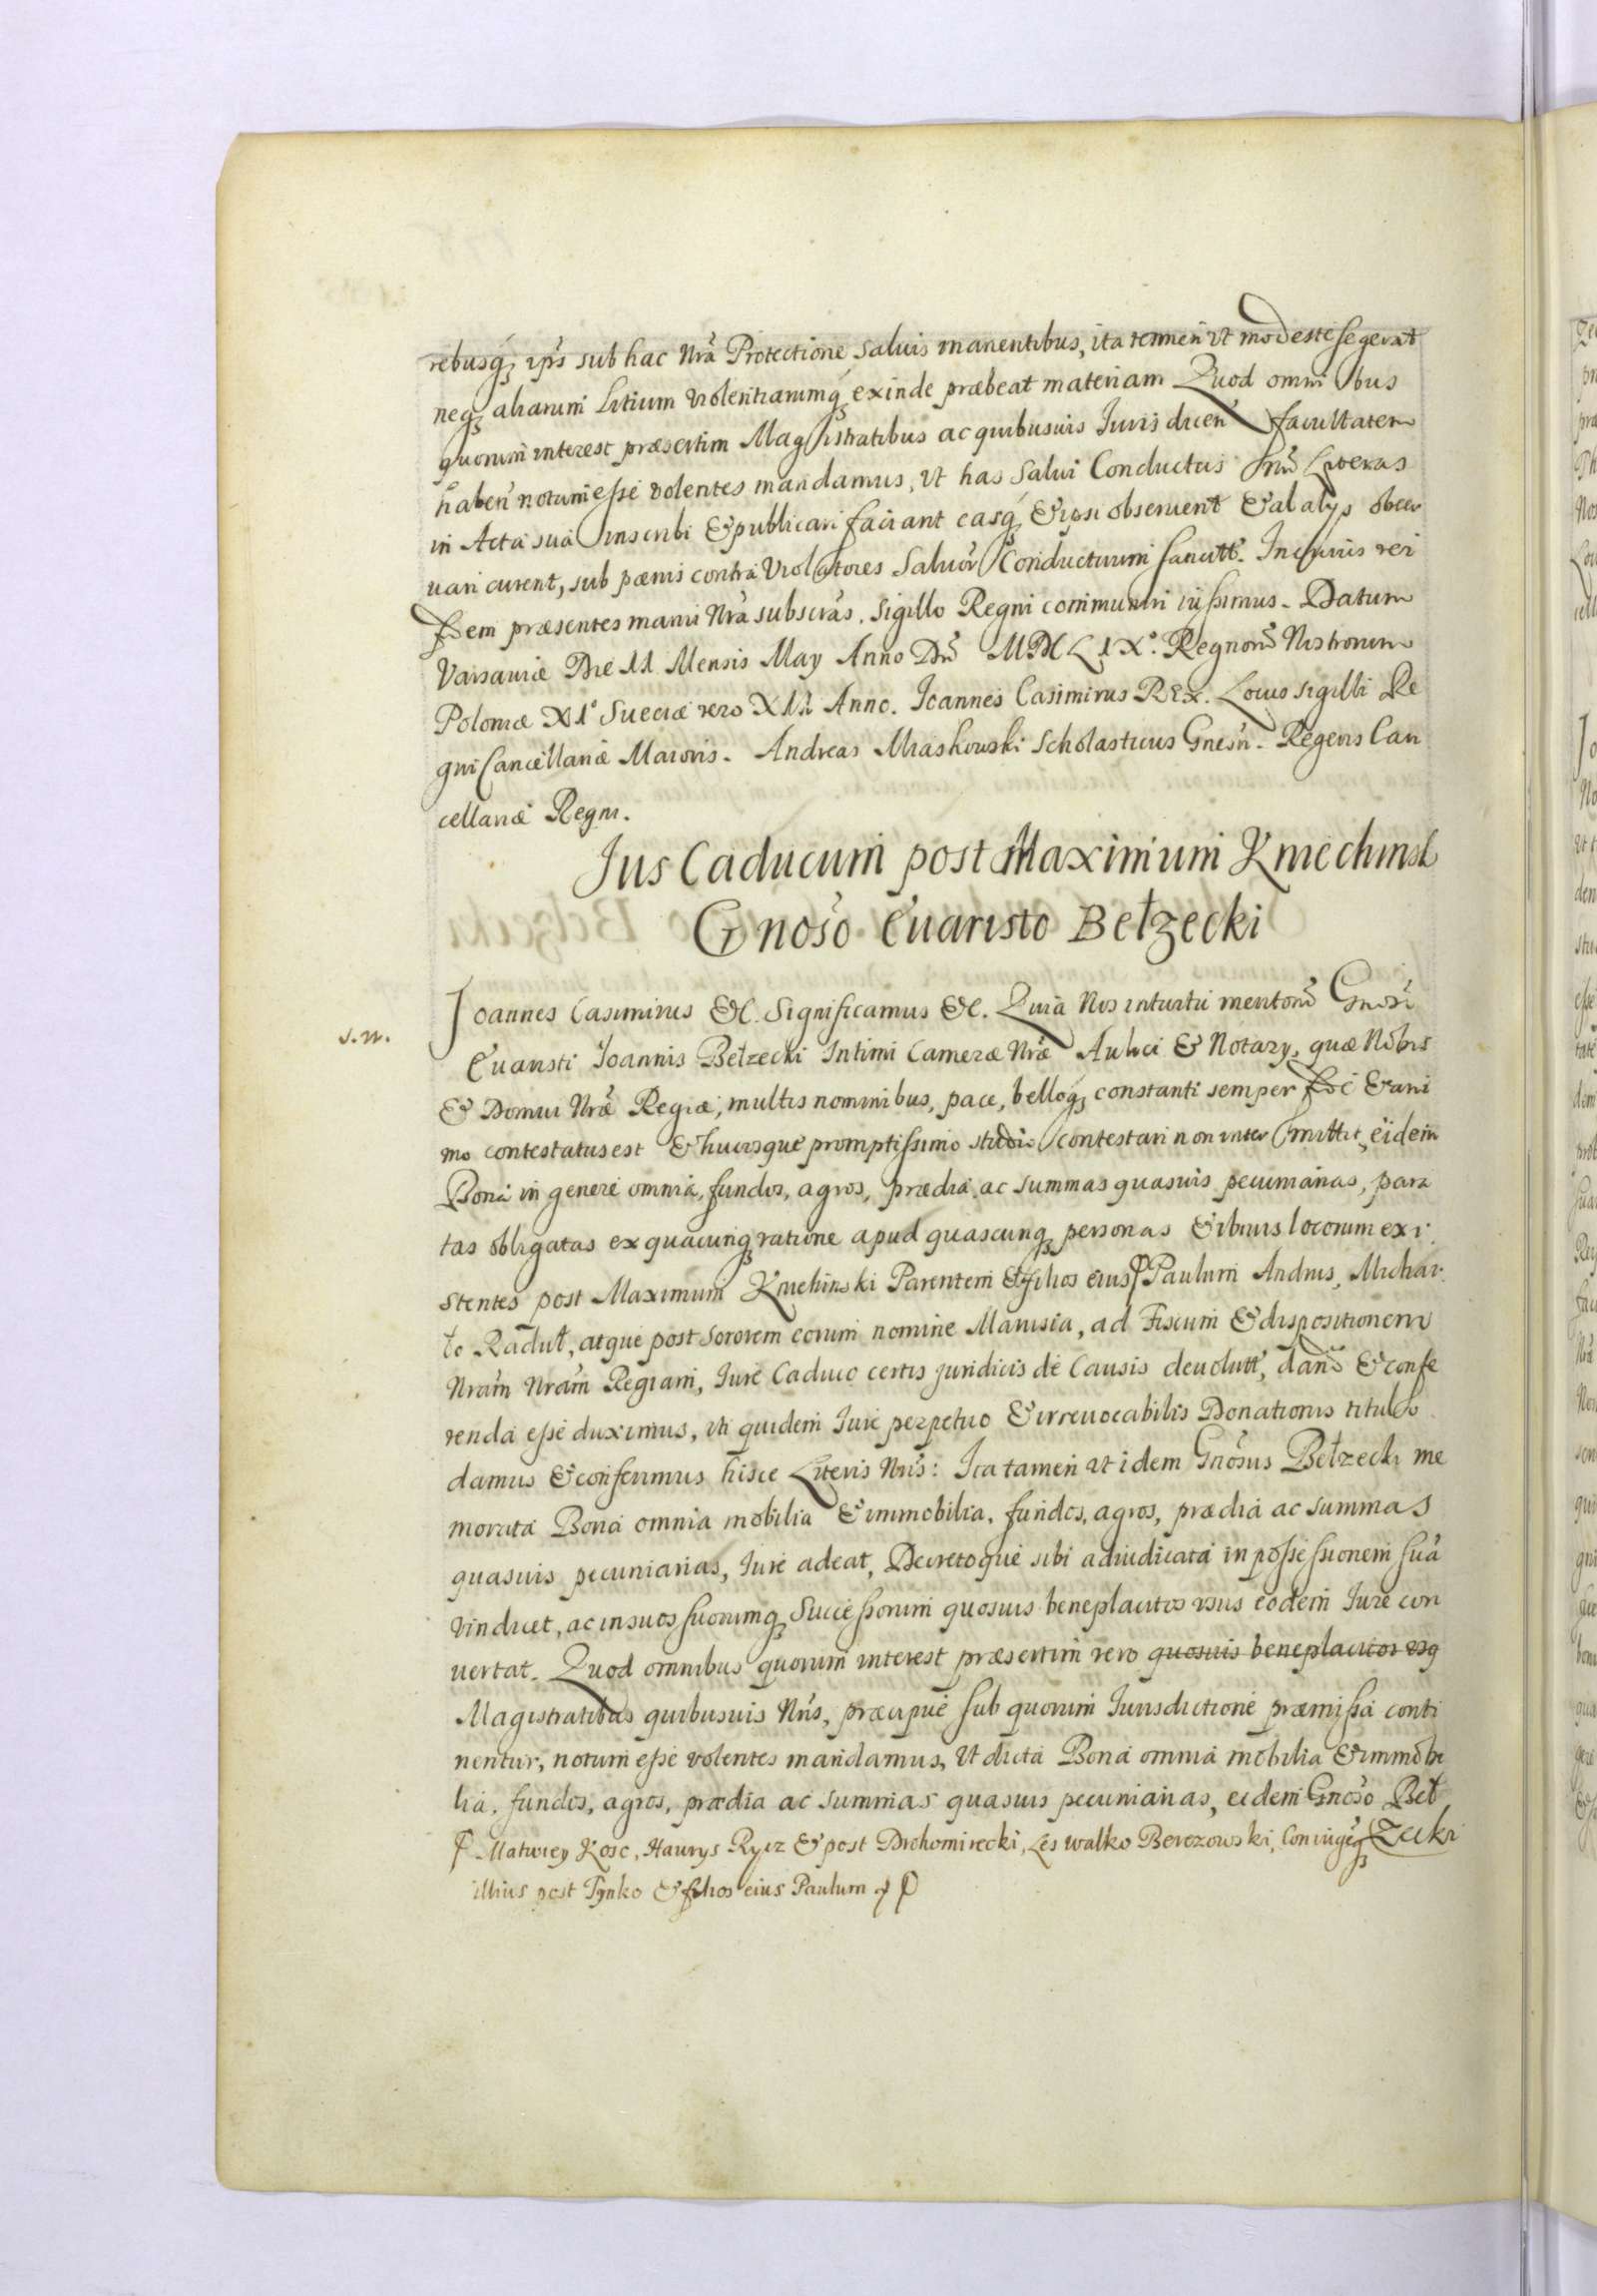 rebusq́ꝫ ip̃s sub hac Nr̃a Protectione saluis manentibus, ita tamen ut modeste se gerat
neqꝫ aliarum Litium violentiarumq́ꝫ exinde præbeat materiam Quod omnibus
quorum interest præsertim Magistratibus ac quibusuis Iuris dicen̄ facultatem
haben̄ notum esse volentes mandamus, ut has Salui Conductus Nr̃i Literas
in Acta sua inscribi & publicari faciant easq́ꝫ & ipsi obseruent & ab alijs obser
uari curent, sub pœnis contra Violatores Saluor̄ Conductuum sancitt̃. In cuius rei
fidem præsentes manu Nr̃a subscr̃as. Sigillo Regni communiri iussimus. Datum
Varsauiæ Die 11 Mensis May Anno Dn̄i MDCLIX°. Regnor̄ Nostrorum
Poloniæ XI° Sueciæ vero XII Anno. Ioannes Casimirus Rex. Locus Sigilli Re
gni Cancellariæ Maioris. Andreas Miaskowski Scholasticus Gnesn̄. Regens Can
cellariæ Regni.
Ius Caducum post Maximum Kniechinsk
Gnoso Euaristo Bełzecki
s.n.
Ioannes Casimirus &c. Significamus &c. Quia Nos intuitu meritor̄ Gnosi
Euaristi Ioannis Bełzecki Intimi Cameræ Nr̃æ Aulici & Notary, quæ Nobis
& Domui Nr̃æ Regiæ, multis nominibus, pace, belloq́ꝫ constanti semper fide & ani
mo contestatus est & hucusque promptissimo studio contestari non inter mittit, eidem
Bona in genere omnia, fundos, agros, prædia, ac summas quasuis pecuniarias, para
tas obligatas ex quacunqꝫ ratione apud quascunqꝫ personas & ubiuis locorum exi
stentes post Maximum Kniehinski Parentem & filios eius ₽ Paulum Andrus, Michay
ło Radul, atque post sororem eorum nomine Marusia, ad Fiscum & dispositionem
Nram̃ Nram̃ Regiam, Iure Caduco certis juridicis de Causis deuolutt̃, dan̄ & confe
renda esse duximus, uti quidem Iure perpetuo & irreuocabilis Donationis titulo
damus & conferimus hisce Literis Nr̃is: Ita tamen ut idem Gnosus Bełzecki me
morata Bona omnia mobilia & immobilia, fundos, agros, prædia ac summas
quasuis pecuniarias, Iure adeat, Decretoque sibi adiudicata in possessionem suã
vindicet, ac in suos suorumqꝫ Successorum quosuis beneplacitos usus eodem Iure con
uertat. Quod omnibus quorum interest præsertim vero quosuis beneplacitos usq
Magistratibus quibusuis Nr̃is, præcipue sub quorum Iurisdictione præmissa conti
nentur, notum esse volentes mandamus, ut dicta Bona omnia mobilia & immobi
lia, fundos, agros, prædia ac summas quasuis pecuniarias, eidem Gnoso Beł
zecki
₽ Matwiey Kosc, Hawrys Rycz & post Drohomirecki, Leswalko Berezowski, Coniugeqꝫ
illius post Tynko & filios eius Paulum ₽